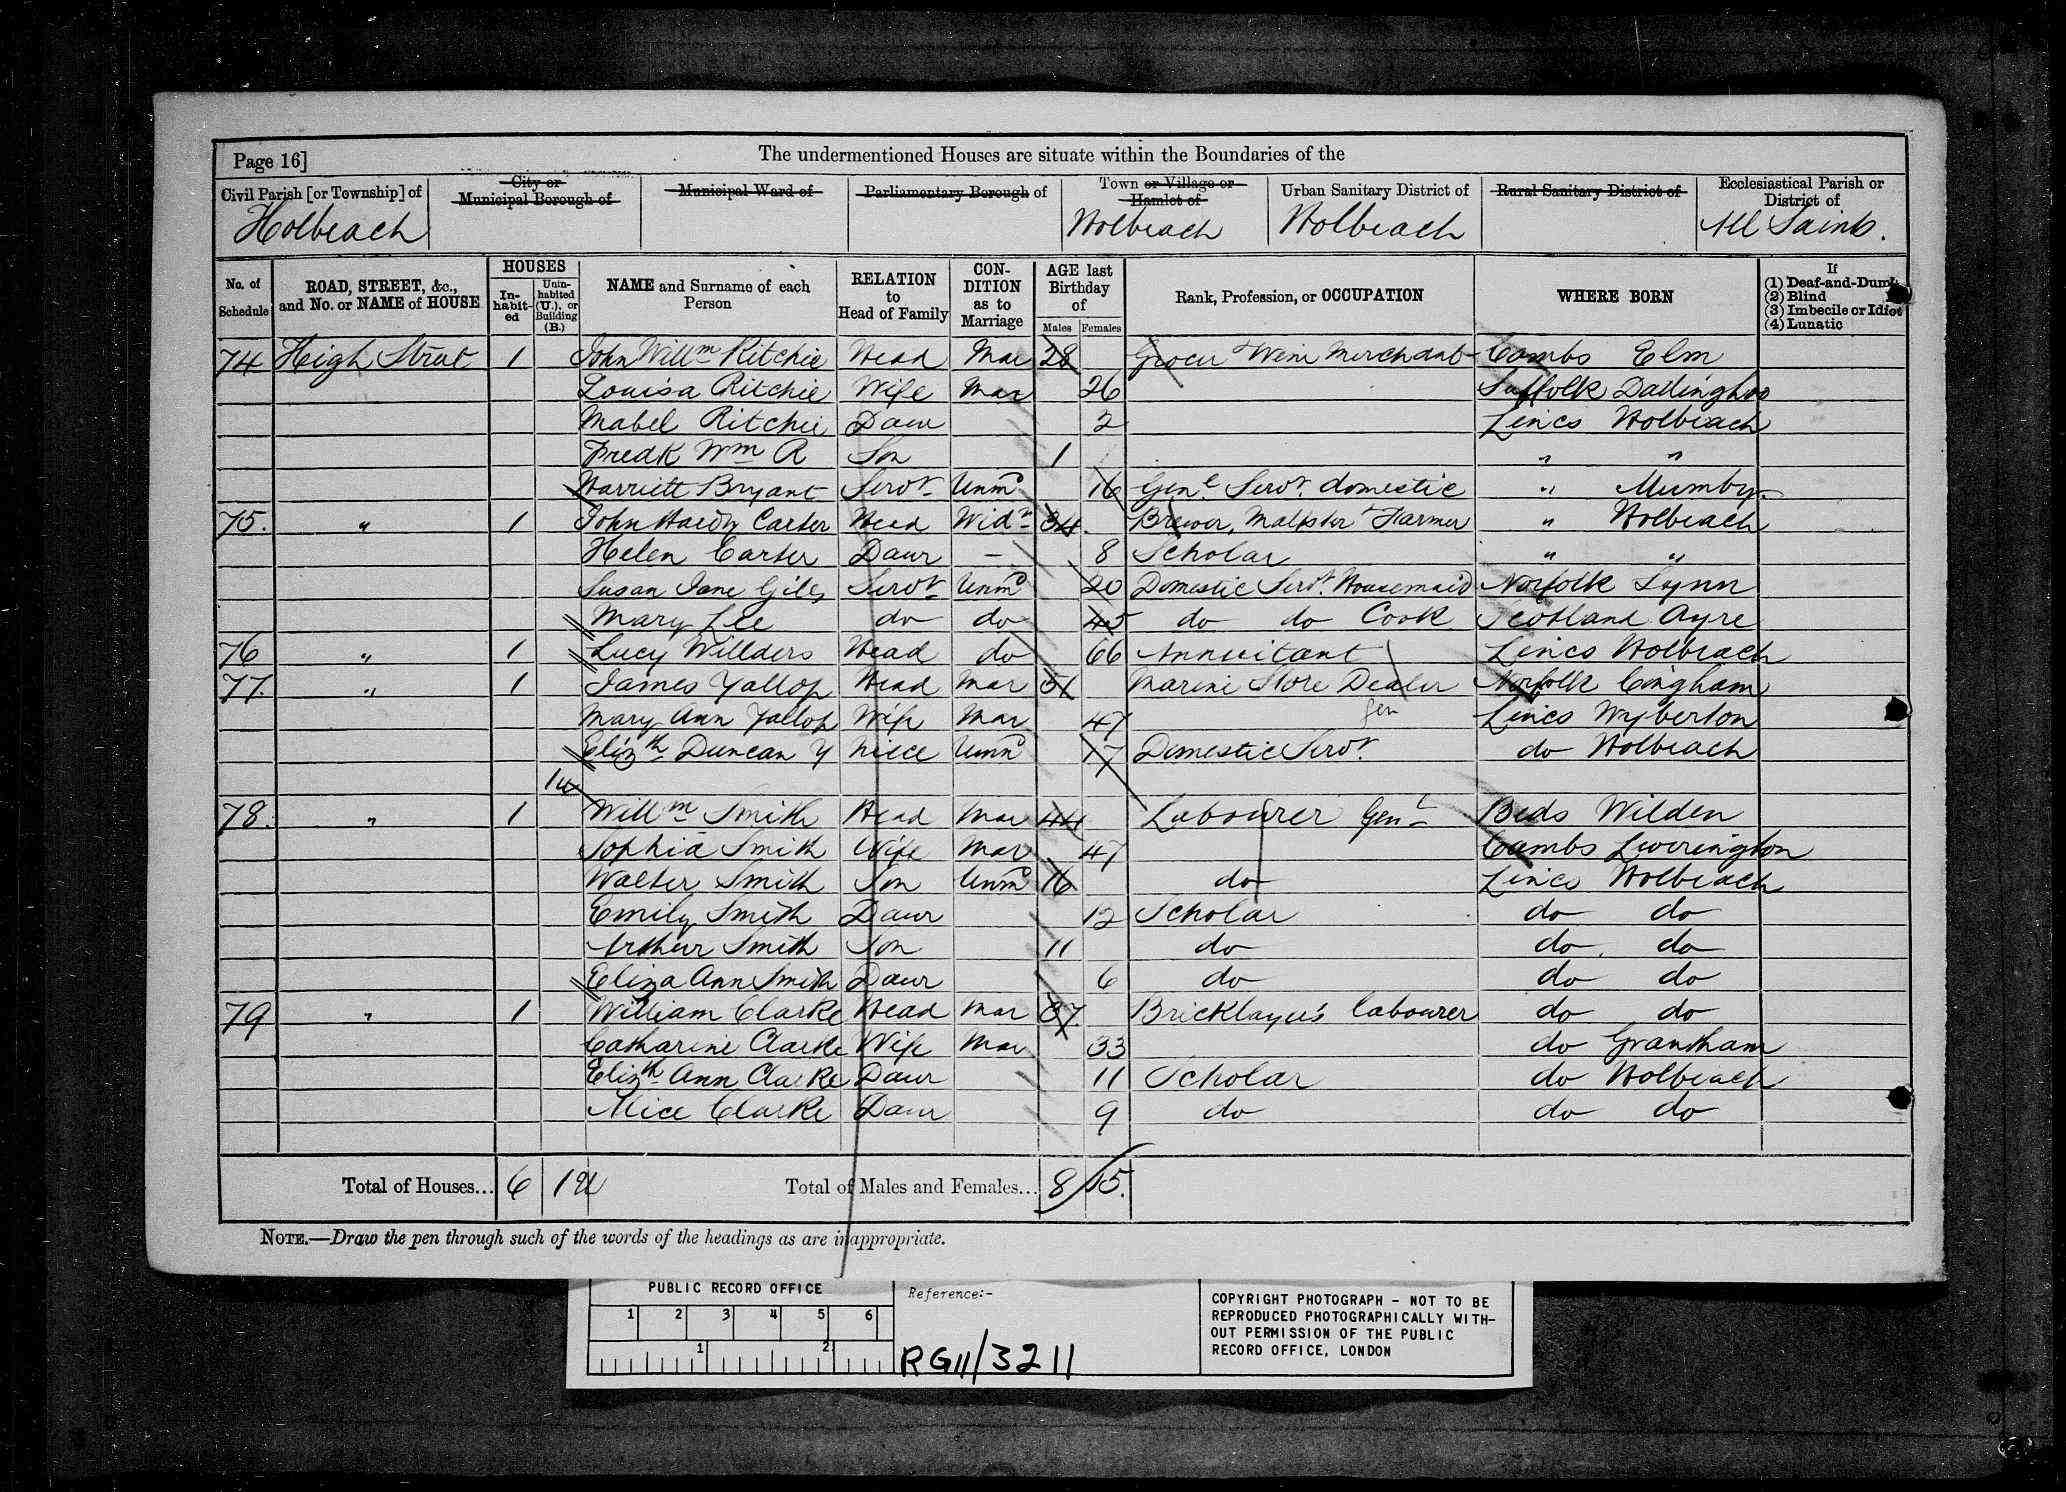 Page 16]
The undermentioned Houses are situate within the Boundaries of the
Civil Parish [or Township] of
City or Municipal Borough of
Municipal Ward of
Parliamentary Borough of
Town or Village or Hamlet of
Urban Sanitary District of
Rural Sanitary District of
Ecclesiastical Parish or District of
Holbeach Holbeach Holbeach All Saints.
No. of Schedule
ROAD, STREET, &c., and No. or NAME of HOUSE
HOUSES
In-habit-ed
Unin-habited (U.), or Building (B.)
NAME and Surname of each Person
RELATION to Head of Family
CON-DITION as to Marriage
AGE last Birthday of
Males Females
Rank, Profession, or OCCUPATION
WHERE BORN
If
(1) Deaf-and-Dumb
(2) Blind
(3) Imbecile or Idiot
(4) Lunatic
74 High Street 1 John Willm Ritchie Head Mar 28 Grocer & Wine Merchant Cambs Elm
Louisa Ritchie Wife Mar 26 Suffolk Dallinghoo
Mabel Ritchie Daur 2 Lincs Holbeach
Fredk Wm A Son 1 " "
Harriett Bryant Servt Unmd 16 Genl Servt domestic " Mumby
75. " 1 John Hardy Carter Head Widr 34 Brewer, Maltster & Farmer " Holbeach
Helen Carter Daur — 8 Scholar " "
Susan Jane Giles Servt Unmd 20 Domestic Servt Housemaid Norfolk Lynn
Mary Lee do do 45 do do Cook Scotland Ayre
76 " 1 Lucy Willders Head do 66 Annuitant Lincs Holbeach
77. " 1 James Yallop Head Mar 51 Marine Store Dealer Norfolk Cingham
gen
Mary Ann Yallop Wife Mar 47 Lincs Wyberton
Elizth Duncan Y Niece Unmd 17 Domestic Servt do Holbeach
1u
78. " 1 Willm Smith Head Mar 44 Labourer Genl Beds Wilden
Sophia Smith Wife Mar 47 Cambs Leverington
Walter Smith Son Unmd 16 do Lincs Holbeach
Emily Smith Daur 12 Scholar do do
Arthur Smith Son 11 do do do
Eliza Ann Smith Daur 6 do do do
79 " 1 William Clarke Head Mar 37. Bricklayer's labourer do do
Catharine Clarke Wife Mar 33 do Grantham
Elizth Ann Clarke Daur 11 Scholar do Holbeach
Alice Clarke Daur 9 do do do
Total of Houses... 6 1u Total of Males and Females... 8 15.
NOTE.—Draw the pen through such of the words of the headings as are inappropriate.
PUBLIC RECORD OFFICE
1 2 3 4 5 6
1 2
Reference:-
RG11/3211
COPYRIGHT PHOTOGRAPH - NOT TO BE
REPRODUCED PHOTOGRAPHICALLY WITH-
OUT PERMISSION OF THE PUBLIC
RECORD OFFICE, LONDON